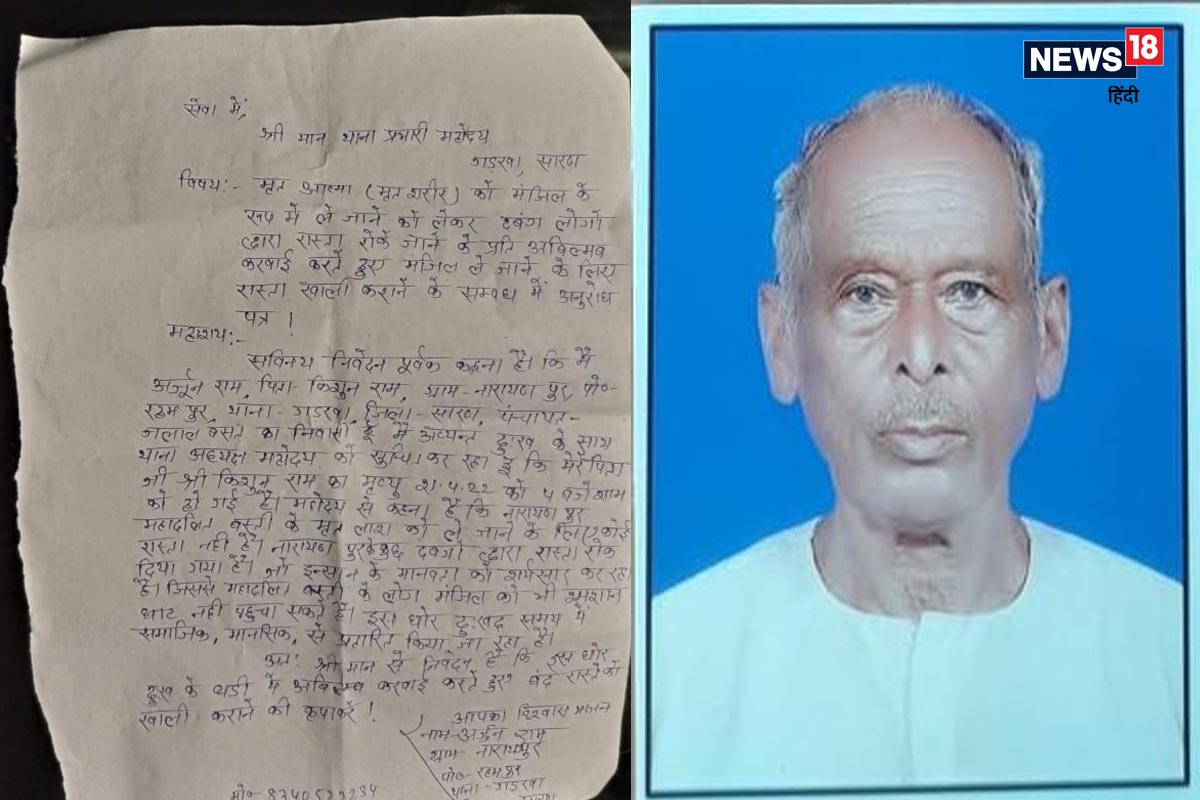 सेवा में,
श्री मान थाना प्रभारी महोदय
गड़खा, सारण
विषय:- मृत आत्मा (मृत शरीर) को मंजिल के
रूप में ले जाने को लेकर दबंग लोगों
द्वारा रास्ता रोके जाने के प्रति अविलम्ब
करवाई करते हुए मंजिल ले जाने के लिए
रास्ता खाली कराने के सम्बंध में अनुरोध
पत्र !
महाशय:-
सविनय निवेदन पूर्वक कहना है। कि मैं
अर्जून राम, पिता- किशुन राम, ग्राम- नारायण पुर, पो०-
रहम पुर, थाना- गड़खा, जिला- सारण, पंचायत-
जलाल बसंत का निवासी हूँ मैं अत्यन्त दुःख के साथ
थाना अध्यक्ष महोदय को सूचित कर रहा हूँ कि मेरे पिता
जी श्री किशुन राम का मृत्यु 21.4.22 को 4 बजे शाम
को हो गई है। महोदय से कहना है कि नारायण पुर
महादलित बस्ती के मृत लाश को ले जाने के लिए कोई
रास्ता नहीं है। नारायण पुर के कुछ दबंगो द्वारा रास्ता रोक
दिया गया है। जो इन्सान के मानवता को शर्मसार कर रहा
है। जिससे महादलित बस्ती के लोग मंजिल को भी श्मशान
घाट नहीं पहुचा सकते हैं। इस घोर दुःखद समय में
समाजिक, मानसिक, से प्रतारित किया जा रहा है।
अतः श्री मान से निवेदन है कि इस घोर
दुख के घडी में अविलम्ब करवाई करते हुए बंद रास्ते को
खाली कराने की कृपा करें !
आपका विश्वास भाजन
नाम- अर्जुन राम
ग्राम- नारायणपुर
पो०- रहमपुर
थाना- गड़खा
मो०- 8340522234
NEWS 18
हिंदी